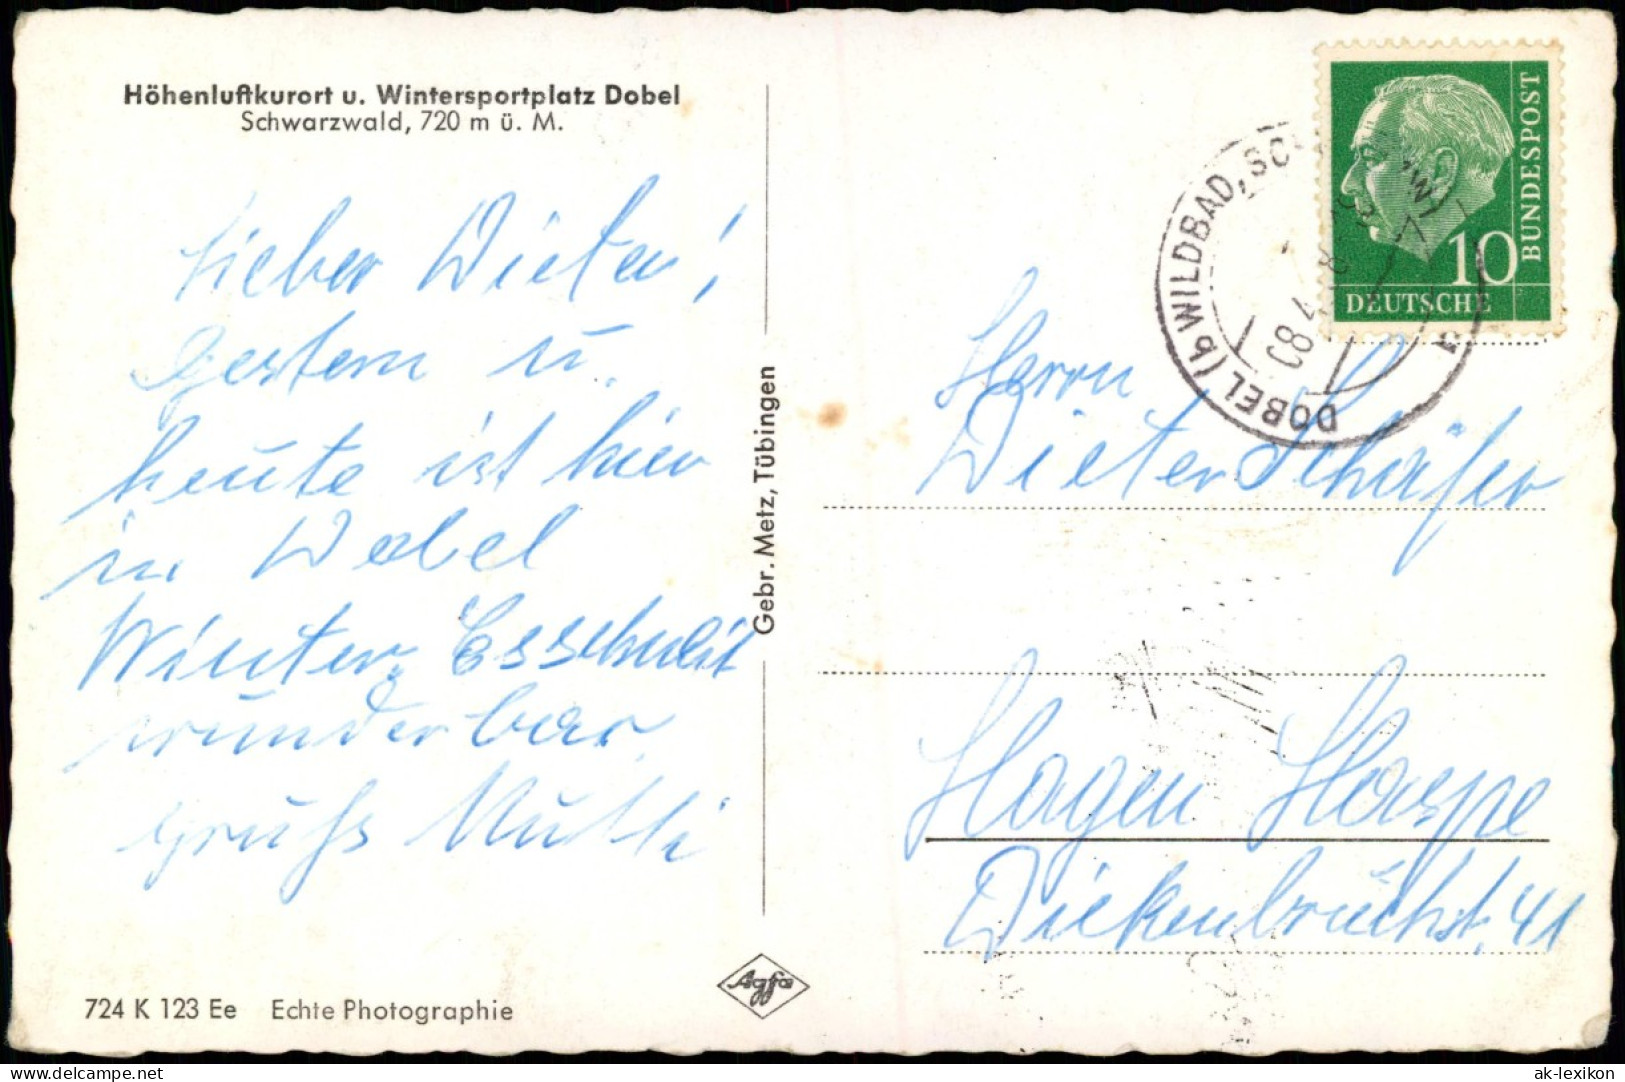 Höhenluftkurort u. Wintersportplatz Dobel
Schwarzwald, 720 m ü. M.
Lieber Dieter!
Gestern u.
heute ist hier
in Dobel
Winter. Es schneit
wunderbar.
Gruß Mutti
724 K 123 Ee Echte Photographie
Gebr. Metz, Tübingen
Agfa
DOBEL (b WILDBAD,
DEUTSCHE
BUNDESPOST
10
Herrn
Dieter Schäfer
Hagen Haspe
Dickenbruchst. 41
www.delcampe.net
ak-lexikon